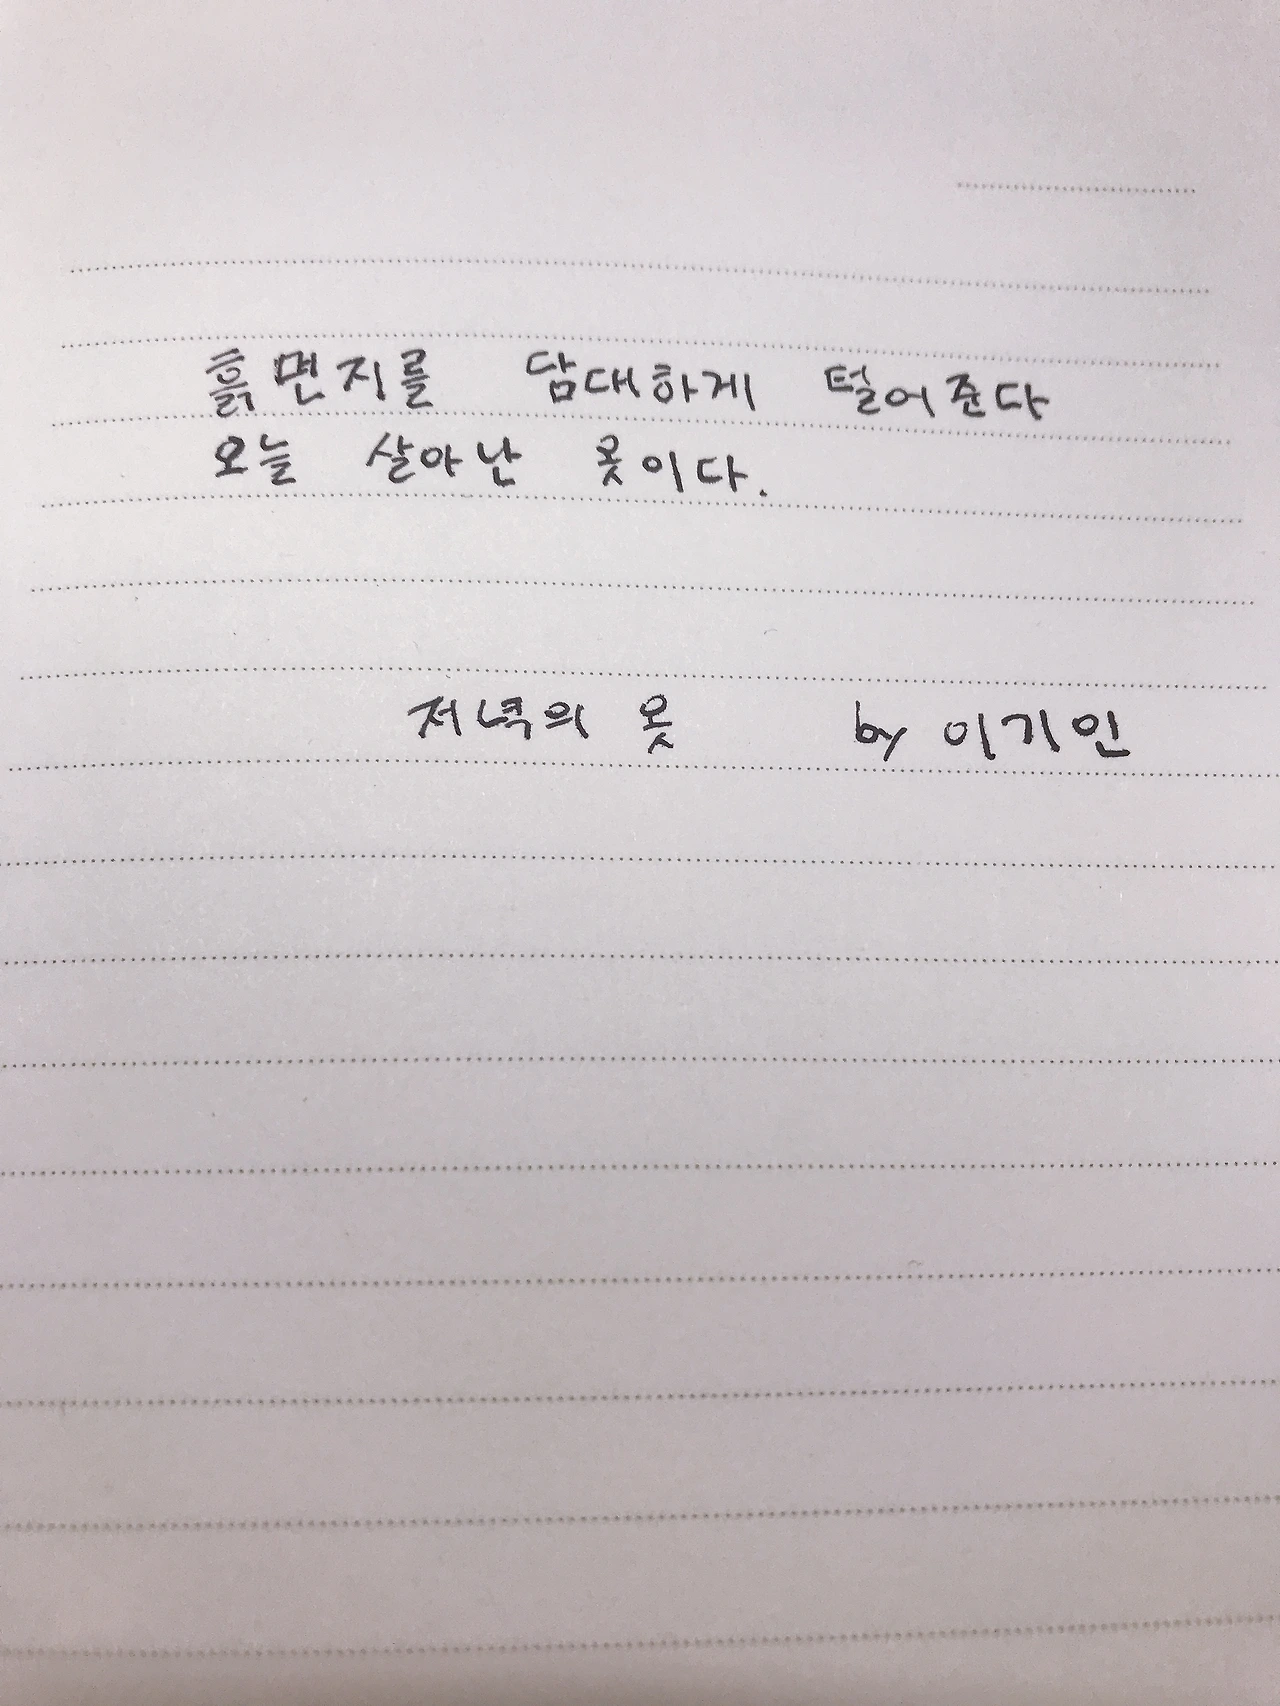 흙먼지를 담대하게 털어준다
오늘 살아난 옷이다.
저녁의 옷 by 이기인